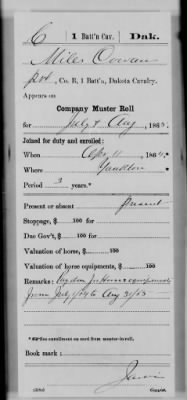 C | 1 Batt'n Cav. | Dak.
Miles Cowan
Pvt., Co. B, 1 Batt'n, Dakota Cavalry.
Appears on
Company Muster Roll
for July & Aug, 186
Joined for duty and enrolled:
When Apr 11, 186
Where Yankton
Period 3 years.*
Present or absent present
Stoppage, $ 100 for
Due Gov't, $ 100 for
Valuation of horse, $ 100
Valuation of horse equipments, $ 100
Remarks: for Horse & equipments
from July 1/ to Aug 31/
* See enrollment on card from muster-in roll.
Book mark:
Copyist.